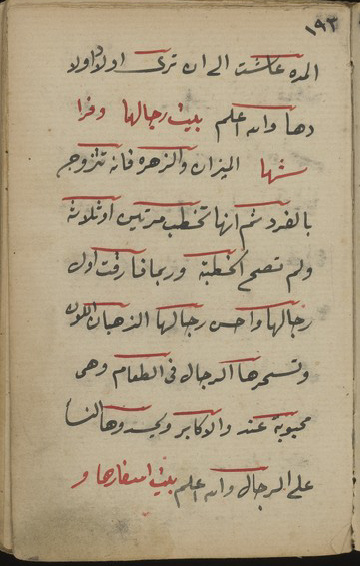 ١٩٣
المده عاشت الى ان ترى اولاد اولا
دها والله اعلم بيت رجالها وفرا
شها الميزان والزهره فانه تتزوج
بالفرد ثم انها تخطب مرتين او ثلاثة
ولم تصح الخطبة وربما فارقت اول
رجالها واحسن رجالها الذهبان اللون
وتسحرها الرجال فى الطعام وهى
محبوبة عند والاكابر ويحسدوها النسا
على الرجال والله اعلم بيت اسفارها و